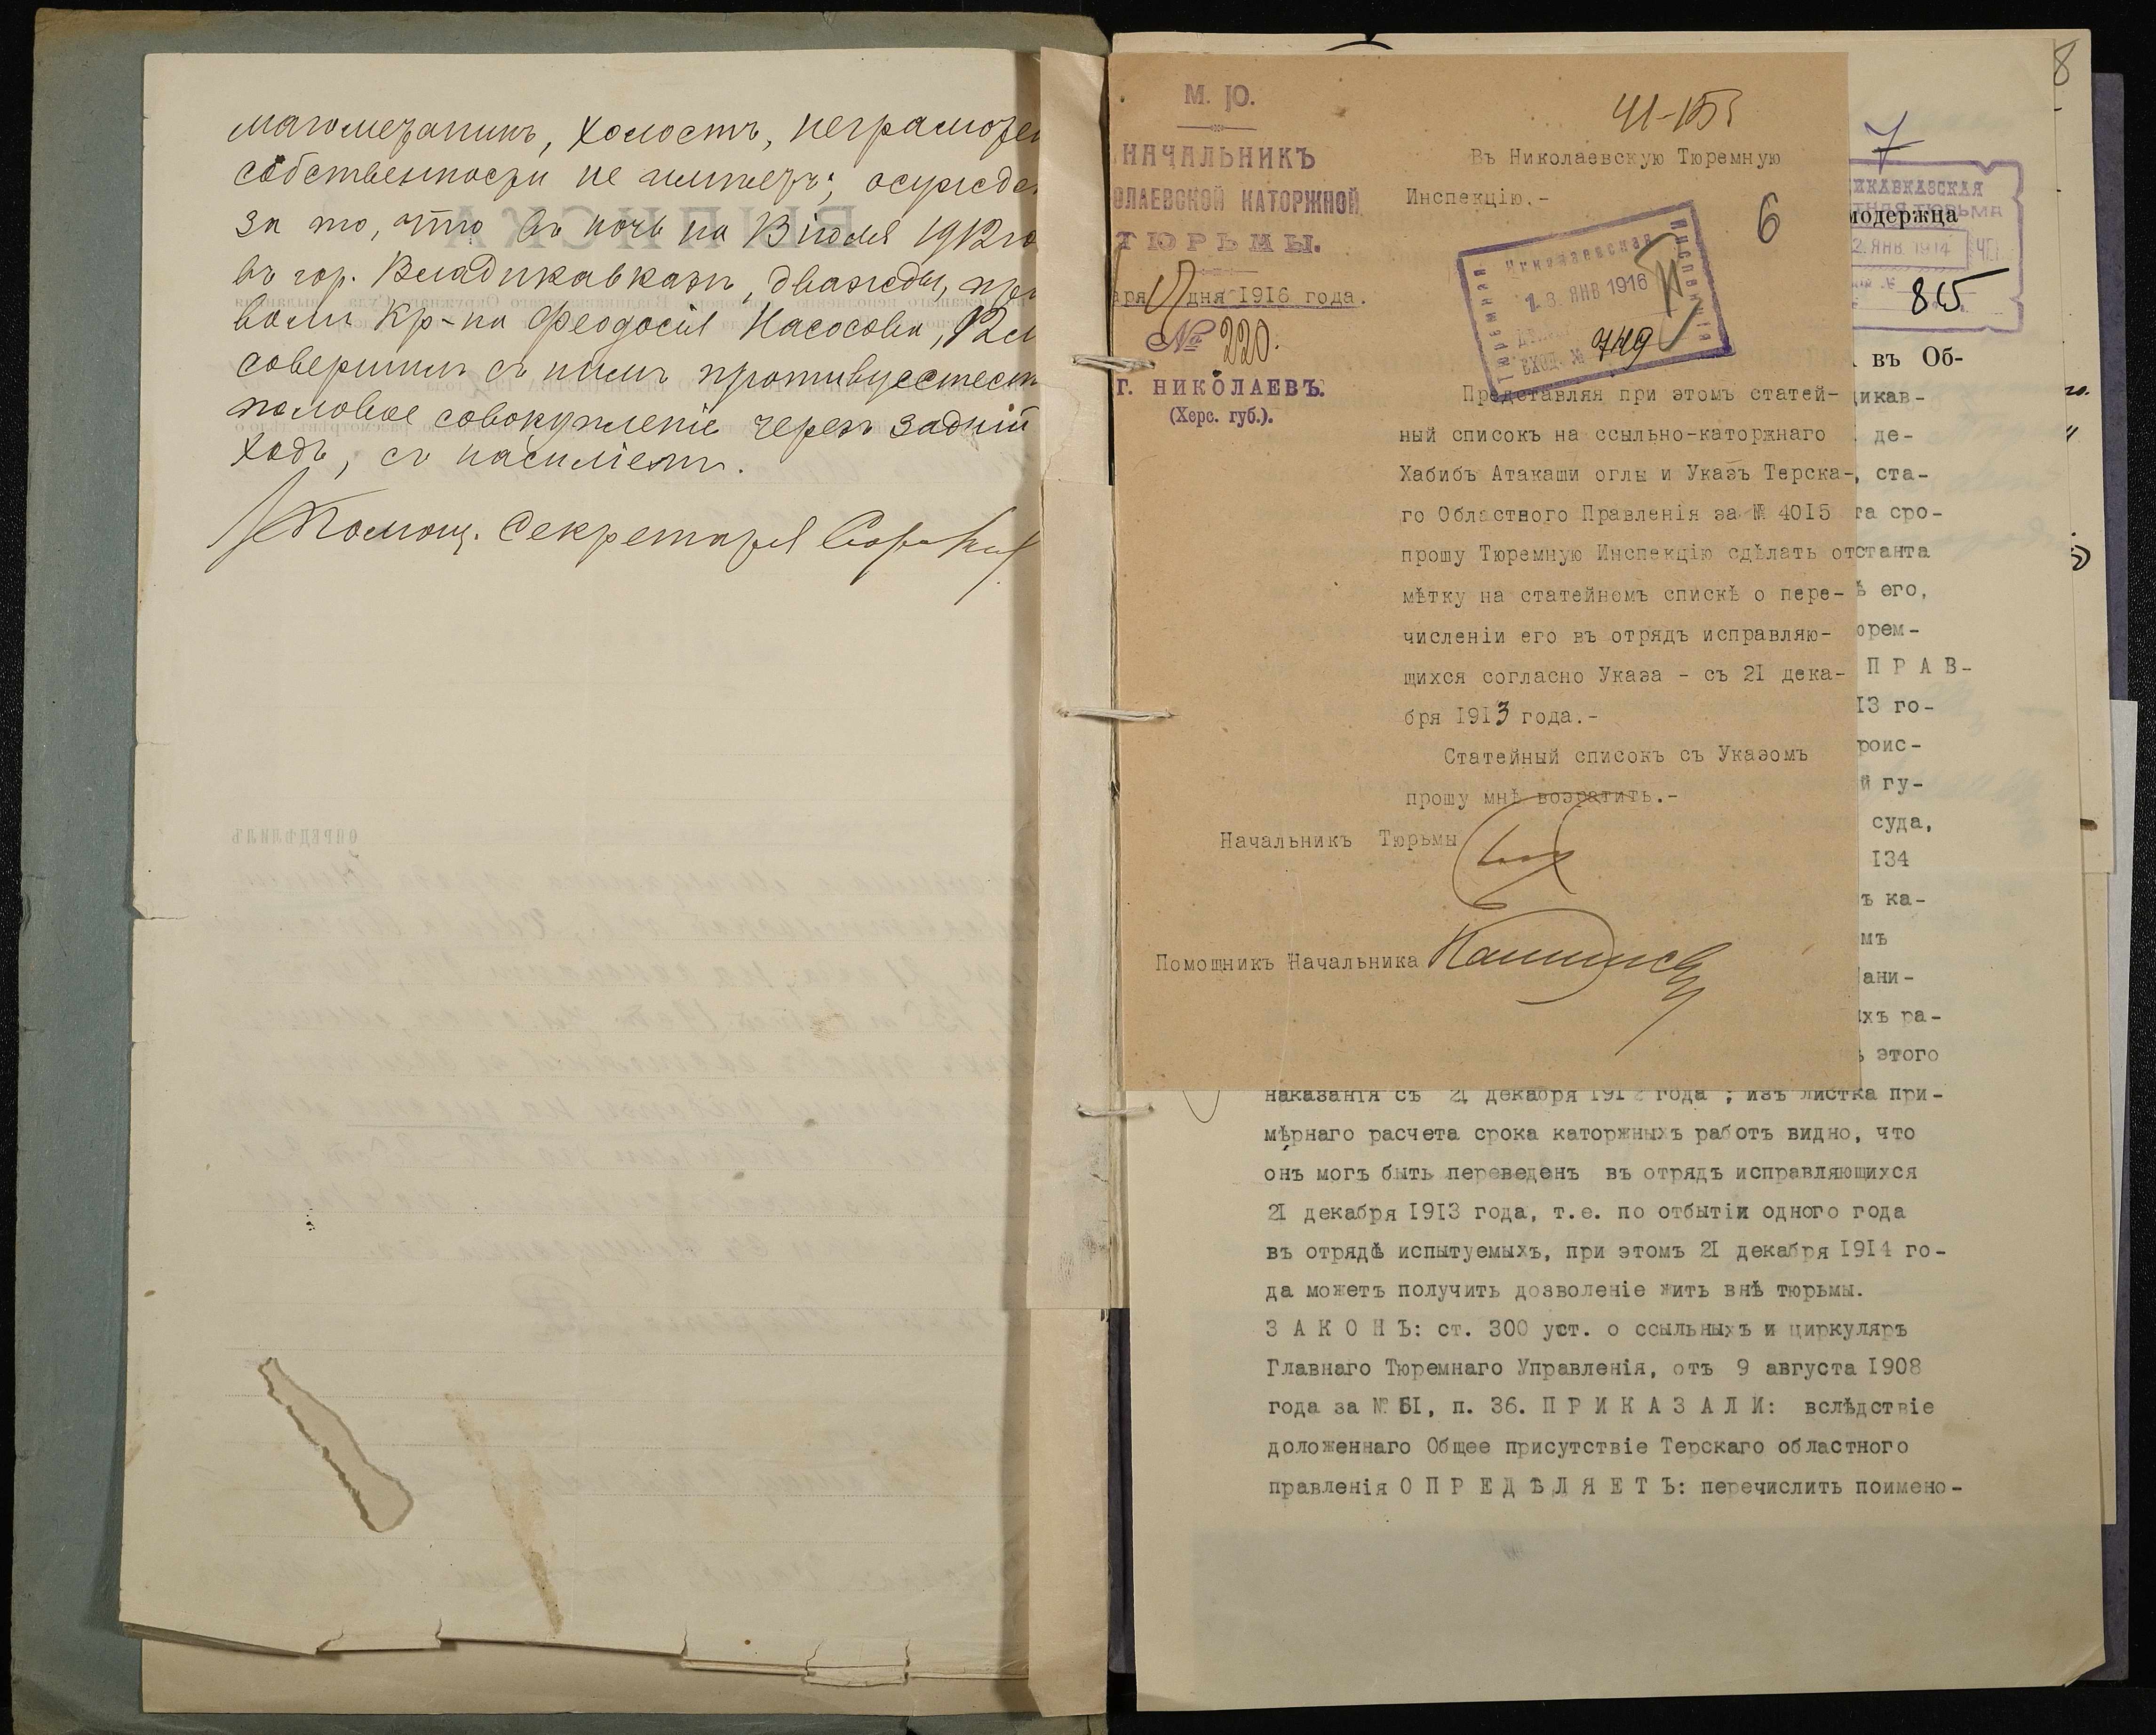 магометанинъ, холостъ, неграмоте
собственности не имѣетъ; осужде
за то, что въ ночь на 13 іюля 1912 го
въ гор. Владикавказѣ, дважды, про
воли кр-на Феодосія Насосова, 12 л
совершилъ съ нимъ противуестест
половое совокупленіе черезъ задній
ходъ, съ насиліемъ.
Помощ. Секретаря
М. Ю.
НАЧАЛЬНИКЪ
ОЛАЕВСКОЙ КАТОРЖНОЙ
ТЮРЬМЫ.
аря 17 дня 1916 года.
№ 220.
Г. НИКОЛАЕВЪ.
(Херс. губ.).
Въ Николаевскую Тюремную
Инспекцію.-
6
Николаевская
Тюремная
Инспекція
13 ЯНВ 1916
ВХОД. № 749
Представляя при этомъ статей-
ный списокъ на ссыльно-каторжнаго
Хабибъ Атакаши оглы и Указъ Терска-
го Областного Правленія за № 4015
прошу Тюремную Инспекцію сдѣлать от
мѣтку на статейномъ спискѣ о пере-
численіи его въ отрядъ исправляю-
щихся согласно Указа - съ 21 дека-
бря 1913 года.-
Статейный списокъ съ Указомъ
прошу мнѣ возратить.-
Начальникъ Тюрьмы
Помощникъ Начальника
8
7
ИКАВКАЗСКАЯ
ТНАЯ ТЮРЬМА
2. ЯНВ 1914
815
модержца
въ Об-
икав-
де-
, ста-
та сро-
станта
ѣ его,
юрем-
П Р А В-
13 го-
роис-
й гу-
суда,
134
ъ ка-
мъ
ани-
хъ ра-
этого
наказанія съ 21 декабря 1912 года ; изъ листка при-
мѣрнаго расчета срока каторжныхъ работъ видно, что
онъ могъ быть переведенъ въ отрядъ исправляющихся
21 декабря 1913 года, т.е. по отбытіи одного года
въ отрядѣ испытуемыхъ, при этомъ 21 декабря 1914 го-
да можетъ получить дозволеніе жить внѣ тюрьмы.
З А К О Н Ъ: ст. 300 уст. о ссыльныхъ и циркуляръ
Главнаго Тюремнаго Управленія, отъ 9 августа 1908
года за № 51, п. 36. П Р И К А З А Л И: вслѣдствіе
доложеннаго Общее присутствіе Терскаго областного
правленія О П Р Е Д Ѣ Л Я Е Т Ъ: перечислить поимено-